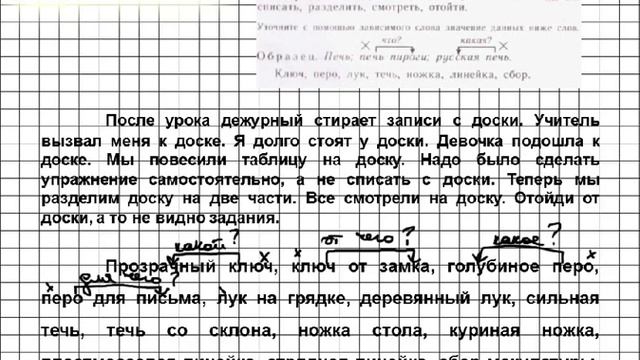 списать, разделить, смотреть, отойти.
Уточните с помощью зависимого слова значение данных ниже слов.
что? какая?
Образец. Печь; печь пироги; русская печь.
Ключ, перо, лук, течь, ножка, линейка, сбор.
После урока дежурный стирает записи с доски. Учитель
вызвал меня к доске. Я долго стоят у доски. Девочка подошла к
доске. Мы повесили таблицу на доску. Надо было сделать
упражнение самостоятельно, а не списать с доски. Теперь мы
разделим доску на две части. Все смотрели на доску. Отойди от
доски, а то не видно задания.
какой? от чего? какое?
Прозрачный ключ, ключ от замка, голубиное перо,
для чего?
перо для письма, лук на грядке, деревянный лук, сильная
течь, течь со склона, ножка стола, куриная ножка,